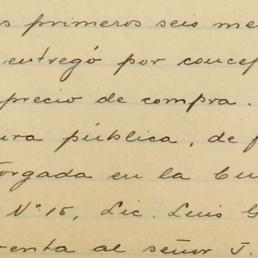 s primeros seis me
entregó por concep
precio de compra.
ura pública, de f
orgada en la Ciu
Nº 15, Lic. Luis G
renta al señor J.